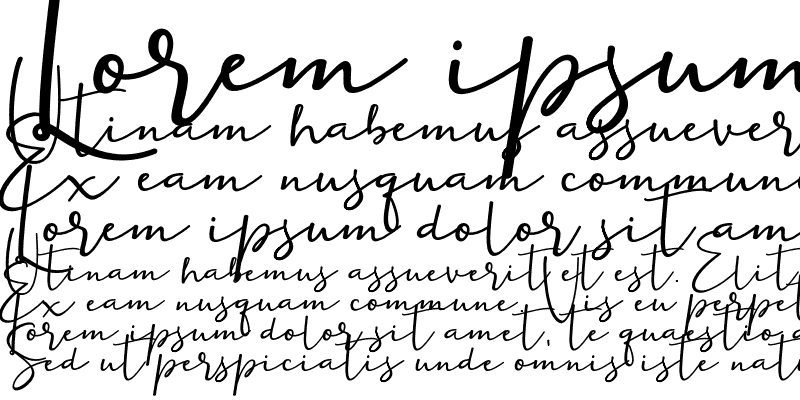 Lorem ipsum
Utinam habemus assuever
Ex eam nusquam commun
Lorem ipsum dolor sit am
Utinam habemus assueverit et est. Elit
Ex eam nusquam commune. Vis eu perpet
Lorem ipsum dolor sit amet, te quaestio
Sed ut perspiciatis unde omnis iste nat